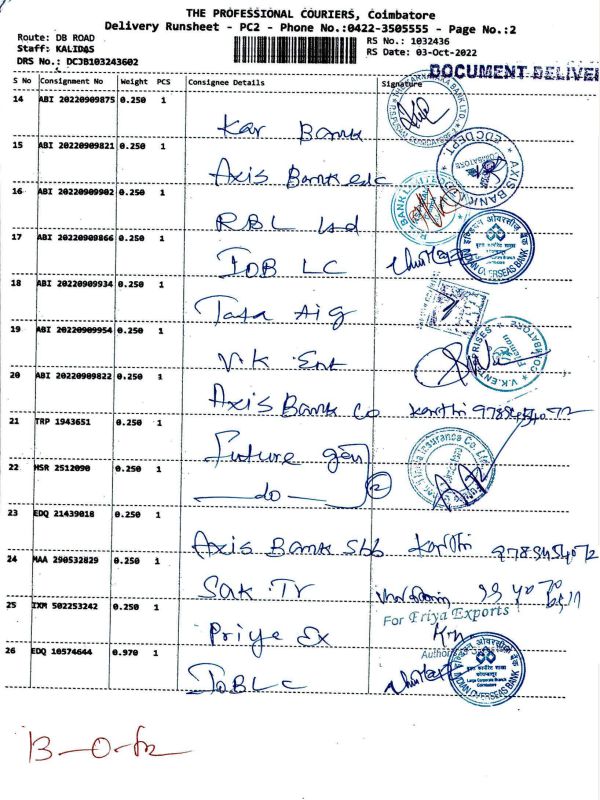 THE PROFESSIONAL COURIERS, Coimbatore
Delivery Runsheet - PC2 - Phone No.:0422-3505555 - Page No.:2
Route: DB ROAD
RS No.: 1032436
Staff: KALIDAS
RS Date: 03-Oct-2022
DRS No.: DCJB103243602
DOCUMENT DELIVE
S No Consignment No Weight PCS Consignee Details Signature
14 ABI 20220909875 0.250 1 Kar Bank
15 ABI 20220909821 0.250 1 Axis Bank edc
16 ABI 20220909902 0.250 1 RBL Ltd
17 ABI 20220909866 0.250 1 IOB LC
18 ABI 20220909934 0.250 1 Tata Aig
19 ABI 20220909954 0.250 1 V.K Ent
20 ABI 20220909822 0.250 1 Axis Bank Co
21 TRP 1943651 0.250 1 Future gen
22 HSR 2512090 0.250 1 do 2
23 EDQ 21439018 0.250 1 Axis Bank Sbb
24 MAA 290532829 0.250 1 Sak Tr
25 IXM 502253242 0.250 1 Priye Ex
For Priya Exports
26 EDQ 10574644 0.970 1 IOB LC
AXIS BANK
EDC DEPT.
इण्डियन ओवरसीज बैंक
INDIAN OVERSEAS BANK
V.K. ENTERPRISES
COIMBATORE
इण्डियन ओवरसीज बैंक
INDIAN OVERSEAS BANK